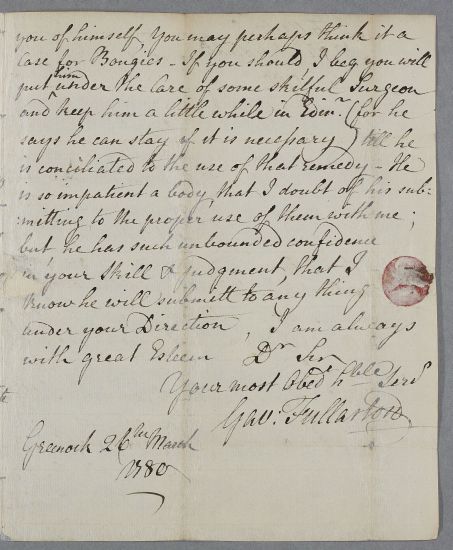 you of himself, You may perhaps think it a
Case for Bougies - If you should, I beg you will
put him under the Care of some skilful Surgeon
and keep him a little while in Edinr. (for he
says he can stay if it is necessary) till he
is conciliated to the use of that remedy - He
is so impatient a body, that I doubt of his sub:
:mitting to the proper use of them with me;
but he has such unbounded confidence
in your Skill & judgment, that I
know he will submitt to any thing
under your Direction, I am always
with great Esteem Dr Sir
Your most Obedt hble Servt
Gavr. Fullarton
Greenock 26th March
1780